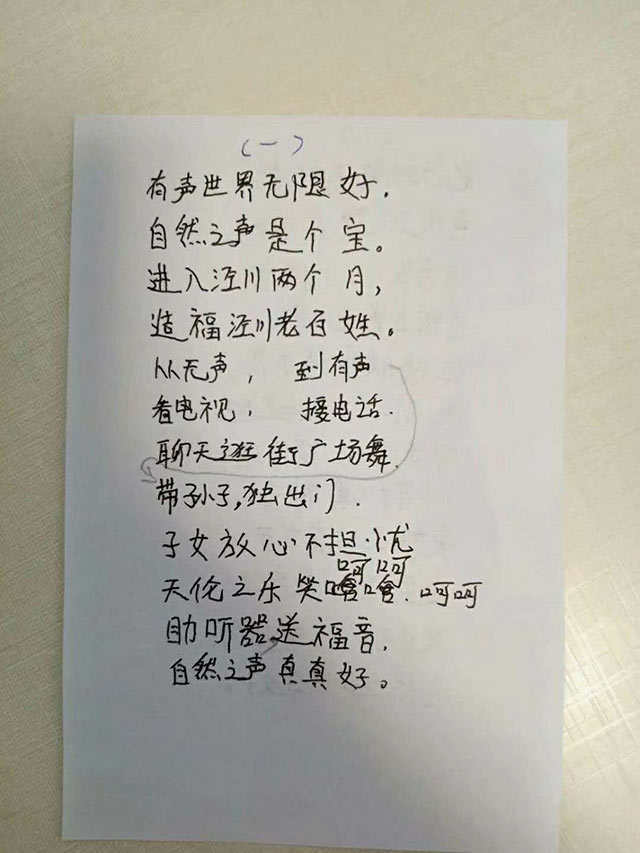 （一）
有声世界无限好，
自然之声是个宝。
进入泾川两个月，
造福泾川老百姓。
从无声， 到有声
看电视， 接电话.
聊天逛街广场舞.
带孙子,独出门.
子女放心不担忧
呵呵
天伦之乐笑噲噲.呵呵
助听器送福音,
自然之声真真好。